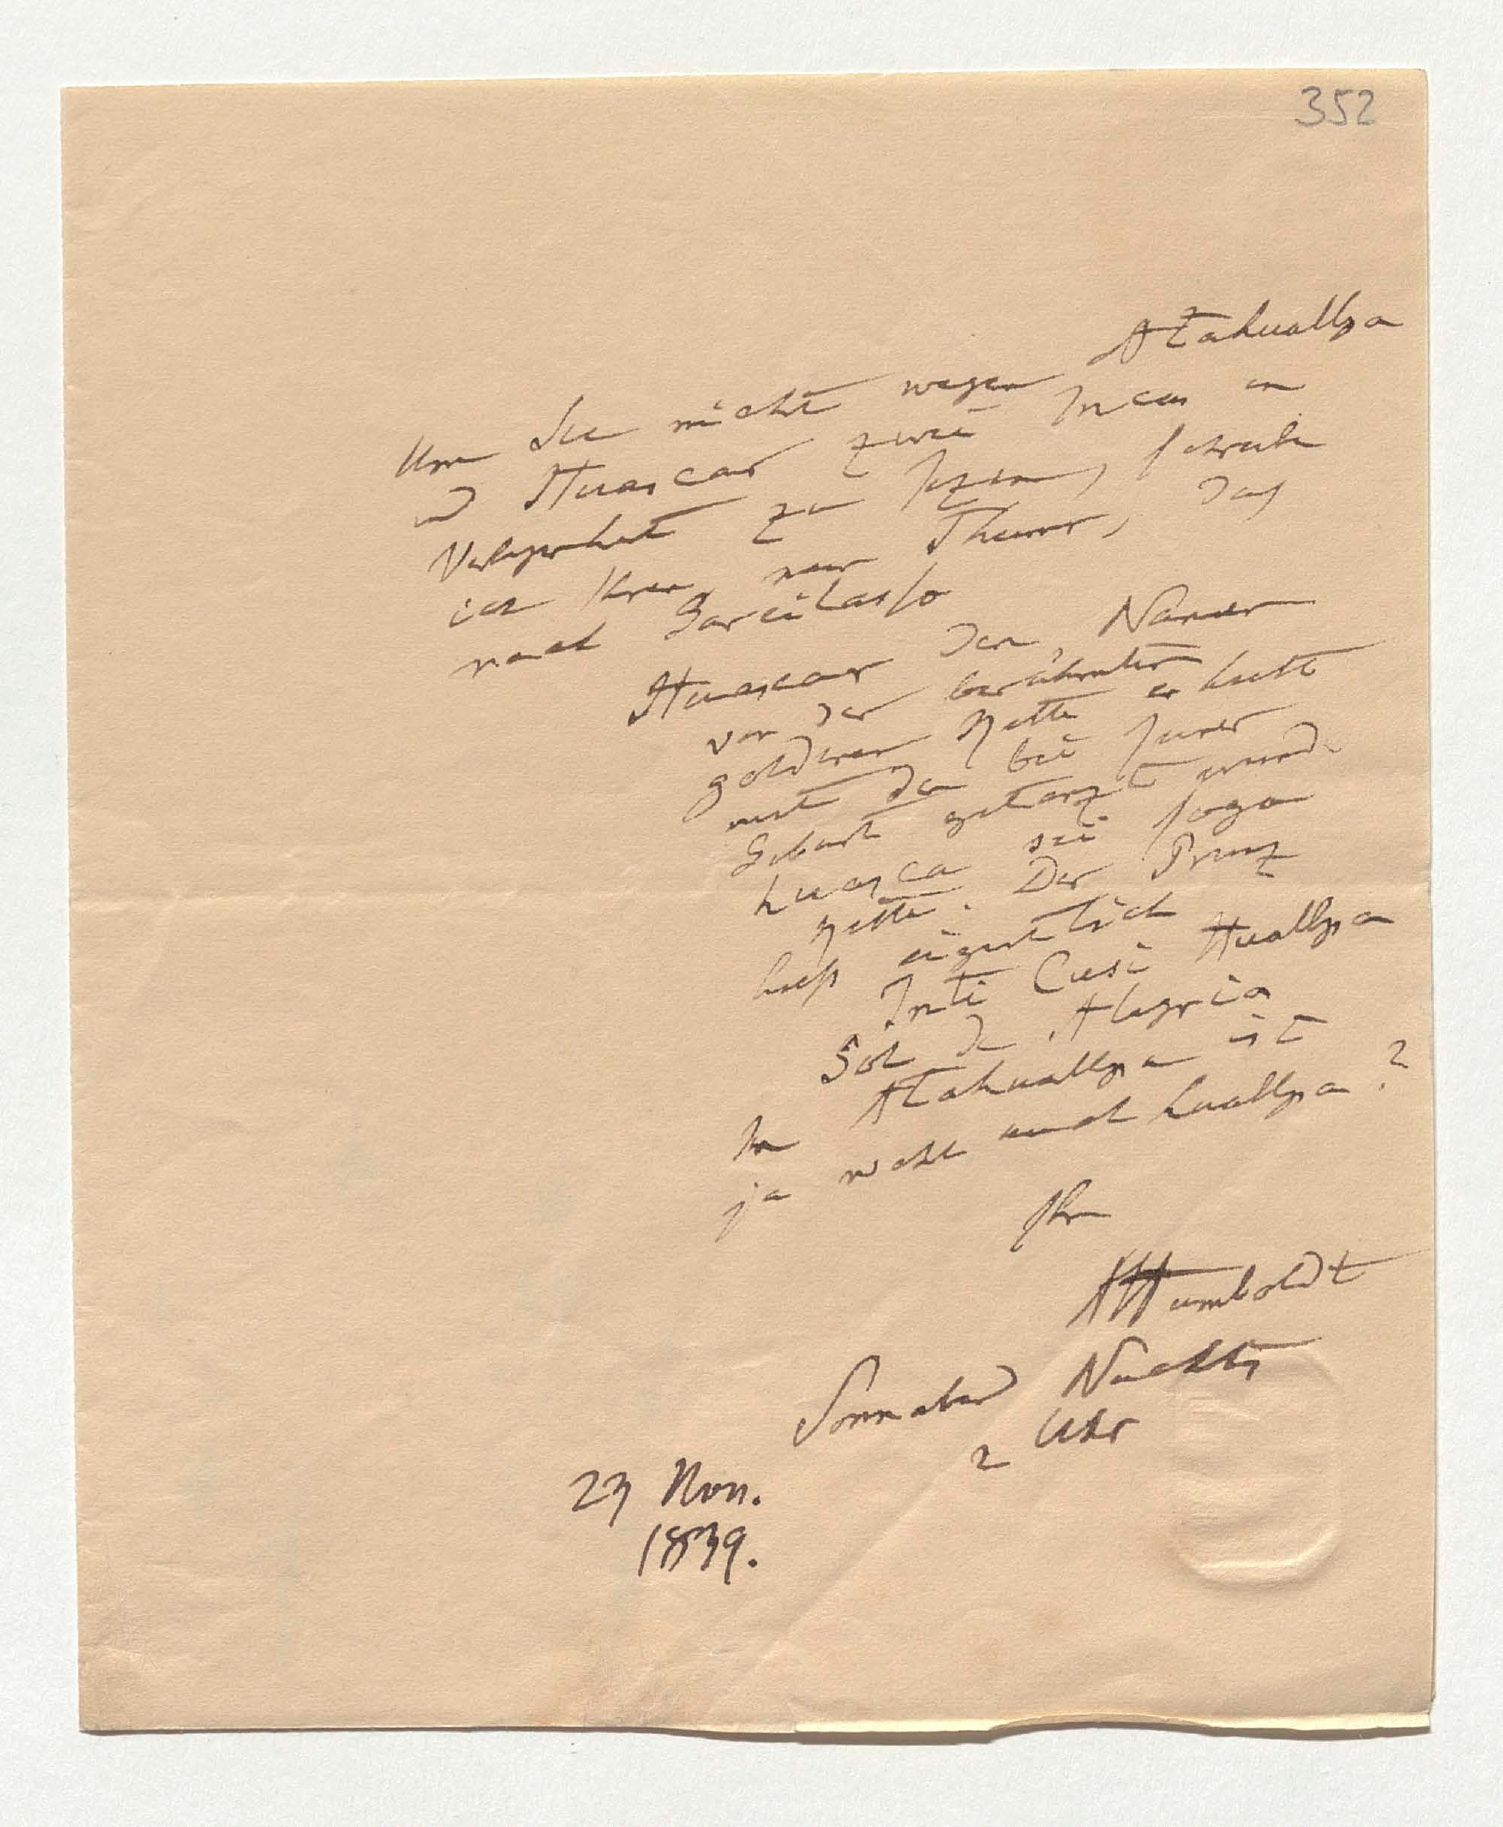 352
Um Sie nicht wegen Atahuallpa
u Huascar zwei Incas in
Verlegenheit zu sezen, schreibe
ich Ihnen, nur Theurer, daß
nach Garcilasso
Huascar den Namen
von der berühmten
goldenen Kette erhielt
mit der bei seiner
Geburt getanzt wurde
huasca sei soga
Kette. Der Prinz
hieß eigentlich
Inti Cusi Huallpa
Sol de Alegria
In Atahuallpa ist
ja nicht auch huallpa?
Ihr
AHumboldt
Sonnabend Nachts
2 Uhr
23 Nov.
1839.